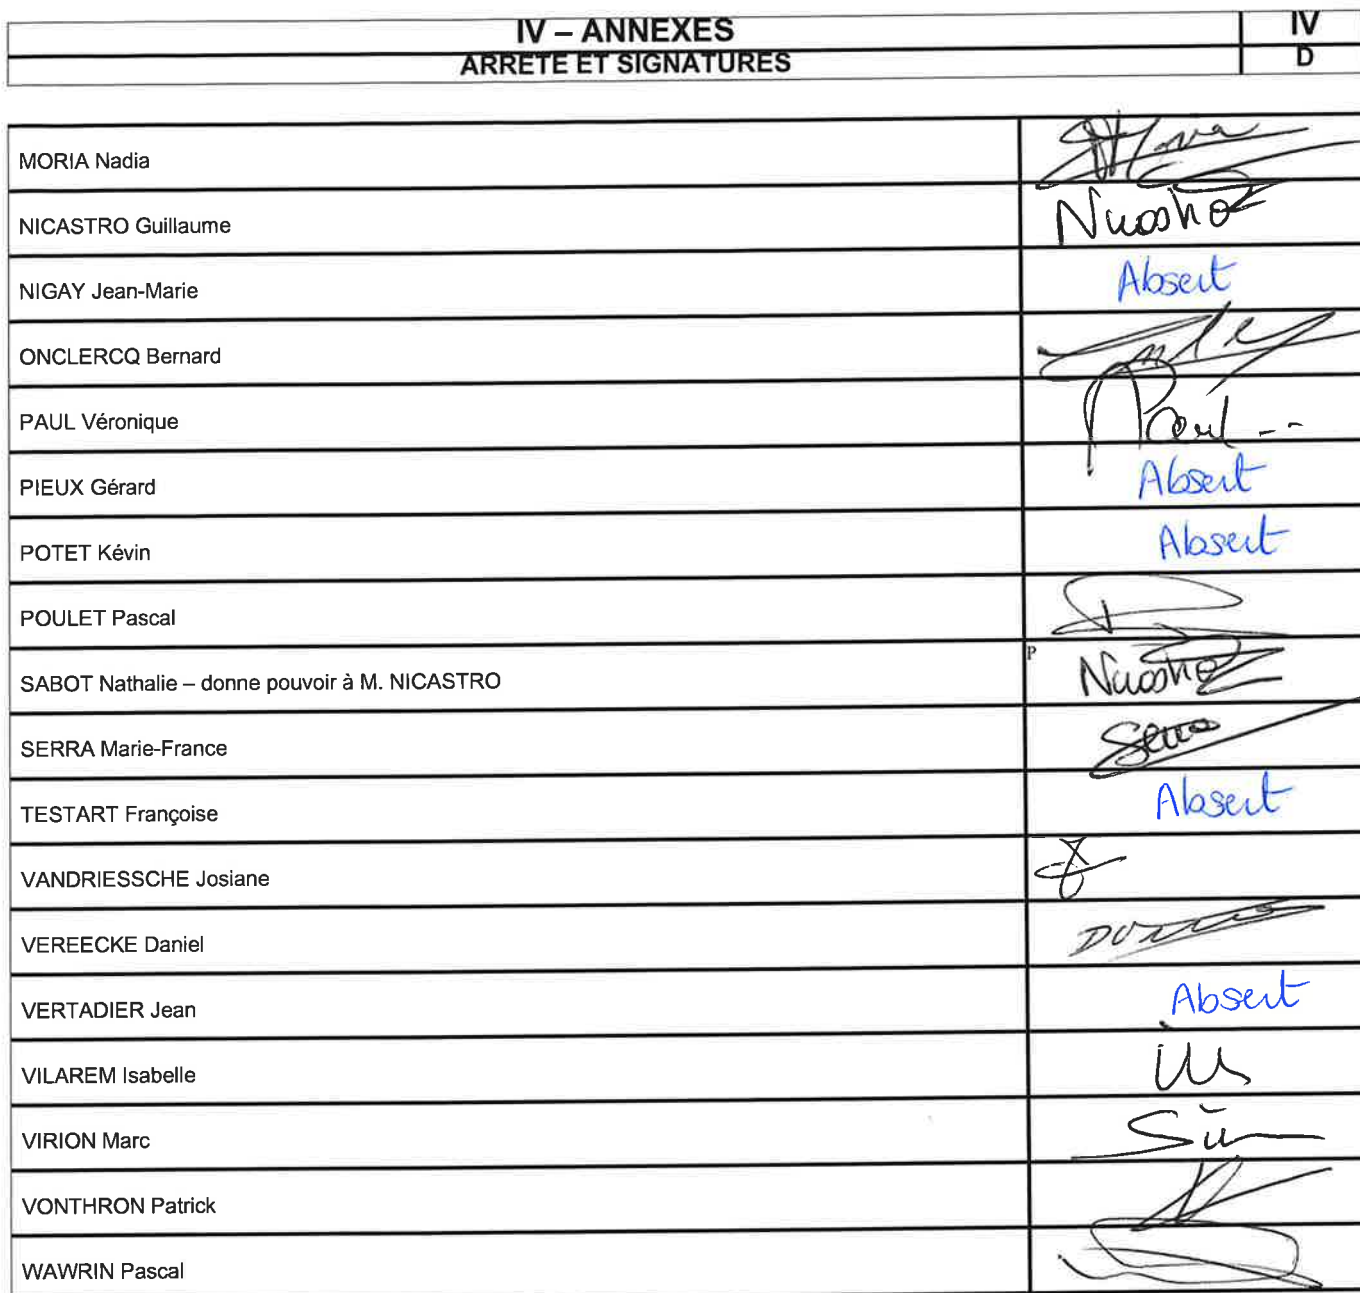 IV – ANNEXES
IV
ARRETE ET SIGNATURES
D
MORIA Nadia
NICASTRO Guillaume
Nicastro
NIGAY Jean-Marie
Absent
ONCLERCQ Bernard
PAUL Véronique
Paul
PIEUX Gérard
Absent
POTET Kévin
Absent
POULET Pascal
P
SABOT Nathalie – donne pouvoir à M. NICASTRO
Nicastro
SERRA Marie-France
Serra
TESTART Françoise
Absent
VANDRIESSCHE Josiane
VEREECKE Daniel
VERTADIER Jean
Absent
VILAREM Isabelle
VIRION Marc
VONTHRON Patrick
WAWRIN Pascal